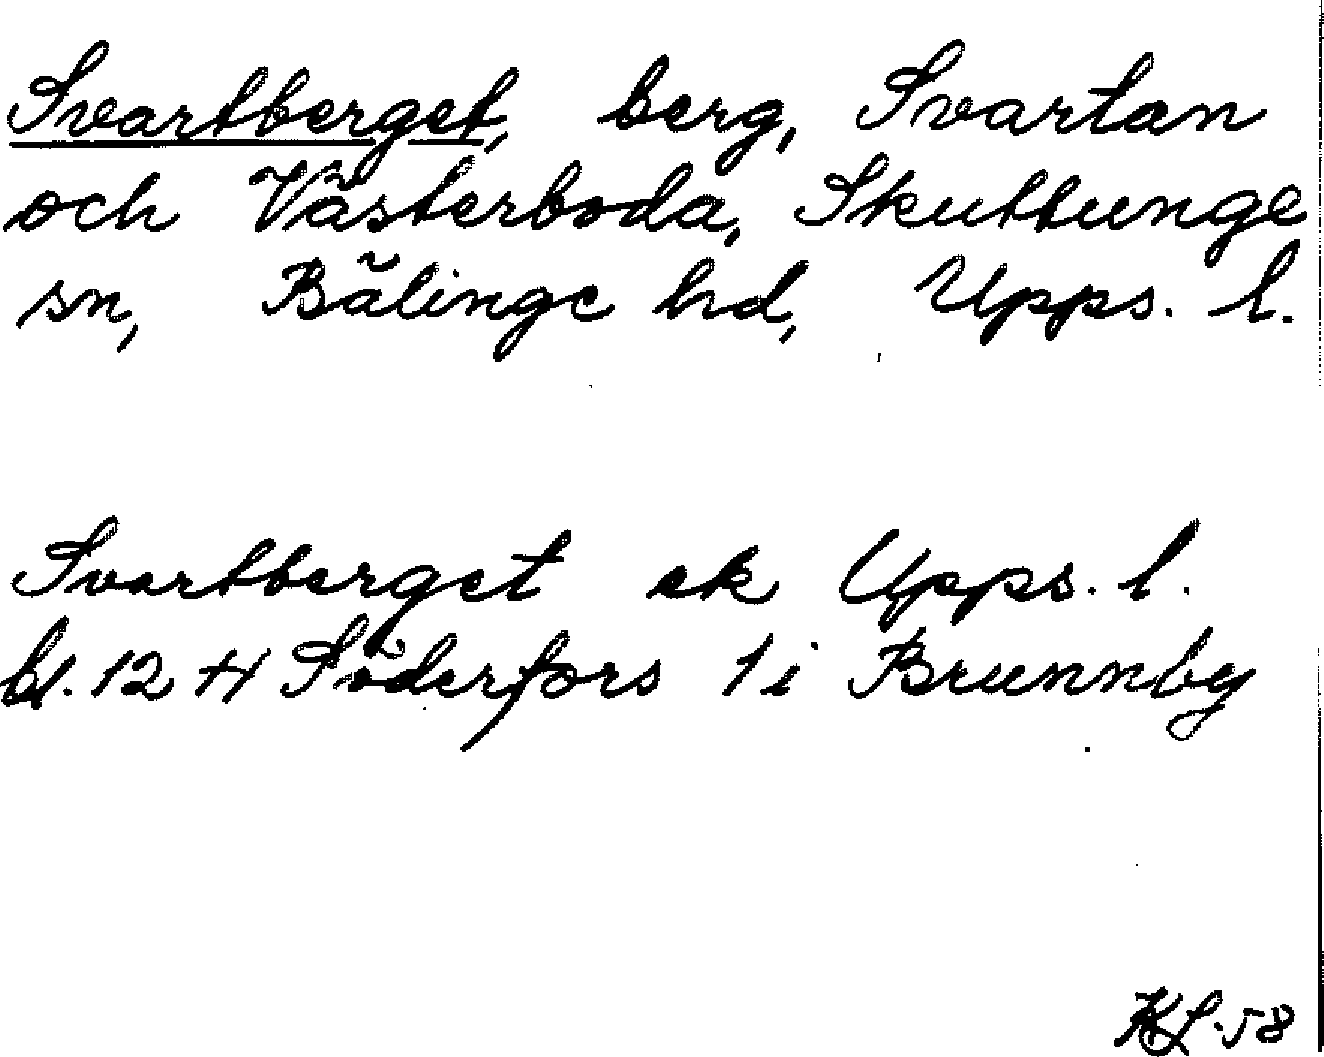 Svartberget, berg, Svartan
och Västerboda, Skuttunge
sn, Bälinge hd, Upps. l.
Svartberget ek Upps. l.
bl. 12 H Söderfors 1 i Brunnby
KL -58